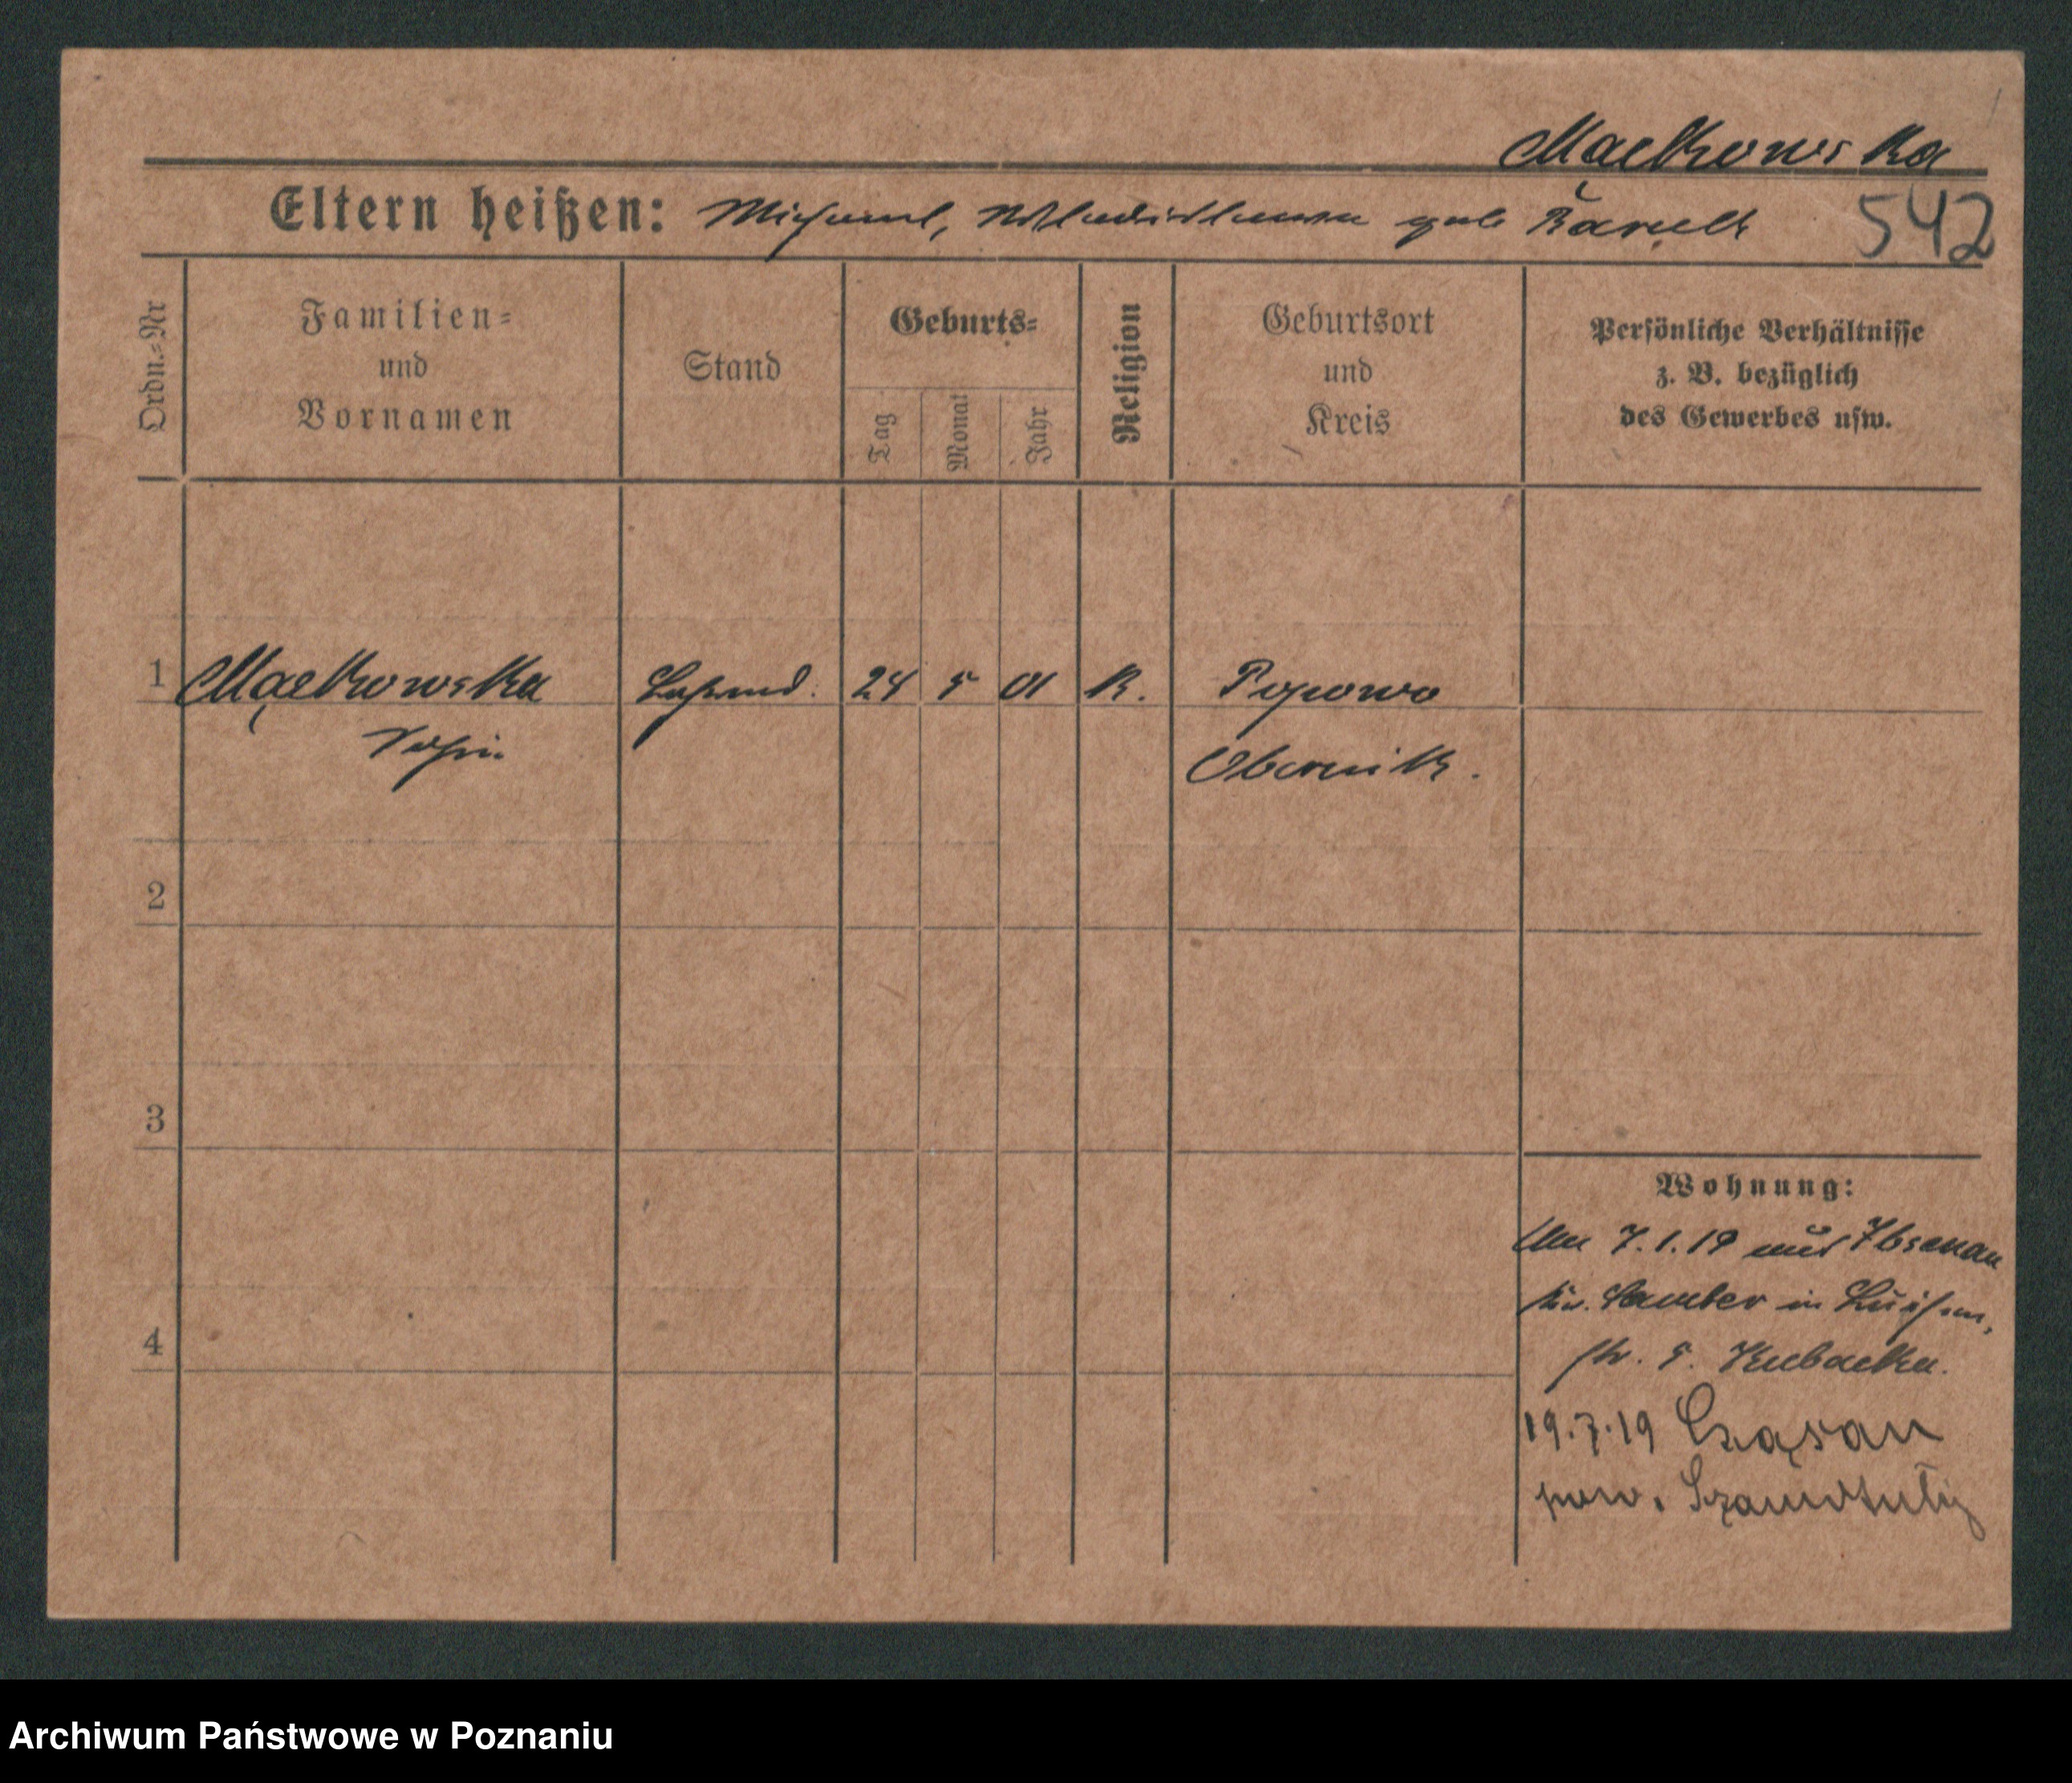 Maćkowska
Eltern heißen: Michael, Wladislawa geb. Bartk
542
Ordn.=Nr
Familien=
und
Vornamen
Stand
Geburts=
Tag
Monat
Jahr
Religion
Geburtsort
und
Kreis
Persönliche Verhältnisse
z. B. bezüglich
des Gewerbes usw.
1 Mackowska 24 5 01 K. Popowo
Obornik.
2
3
4
Wohnung:
7.1.19 aus
Samter in Luisen,
str. 5. Kubacka.
19.7.19
pow. Szamotuły
Archiwum Państwowe w Poznaniu